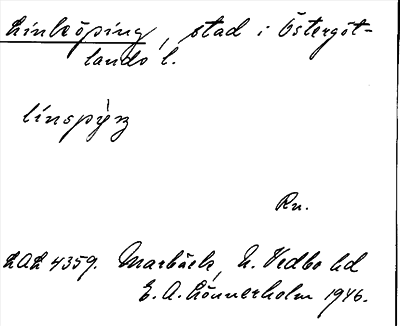 Linköping, stad i Östergöt-
lands l.
línspìŋ
Rn.
LAL 4359. Marbäck, N. Vedbo hd
E. A. Lönnerholm 1946.